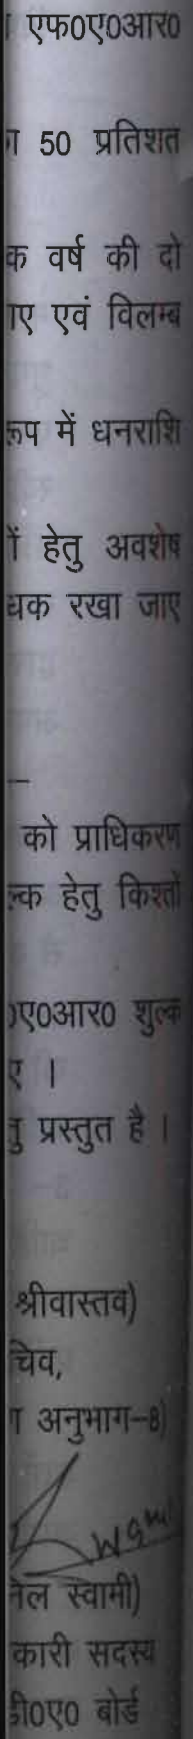 एफ0ए0आर0
50 प्रतिशत
वर्ष की दो
एवं विलम्ब
में धनराशि
हेतु अवशेष
रखा जाए
को प्राधिकरण
हेतु किश्तों
0ए0आर0 शुल्क
।
प्रस्तुत है ।
श्रीवास्तव)
चिव,
अनुभाग-8)
स्वामी)
कारी सदस्य
डी0ए0 बोर्ड